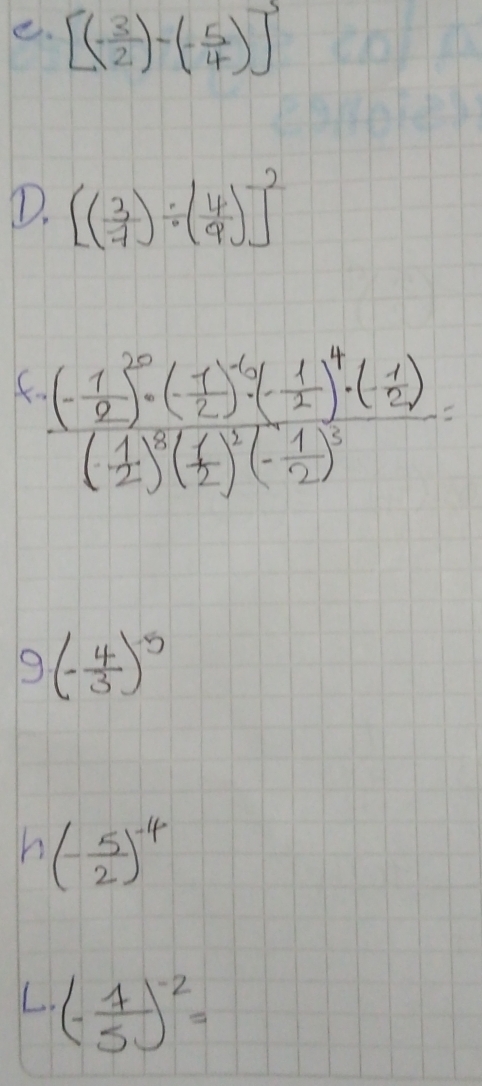 c. [(-3/2) - (-5/4)]³
D. [(3/7) ÷ (4/9)]²
f. (-1/2)²⁰ · (-1/2)⁻⁶ · (-1/2)⁴ · (-1/2) / (-1/2)⁸ (1/2)² (-1/2)³ =
g (-4/3)⁻⁵
h (-5/2)⁻⁴
L. (-1/5)⁻² =